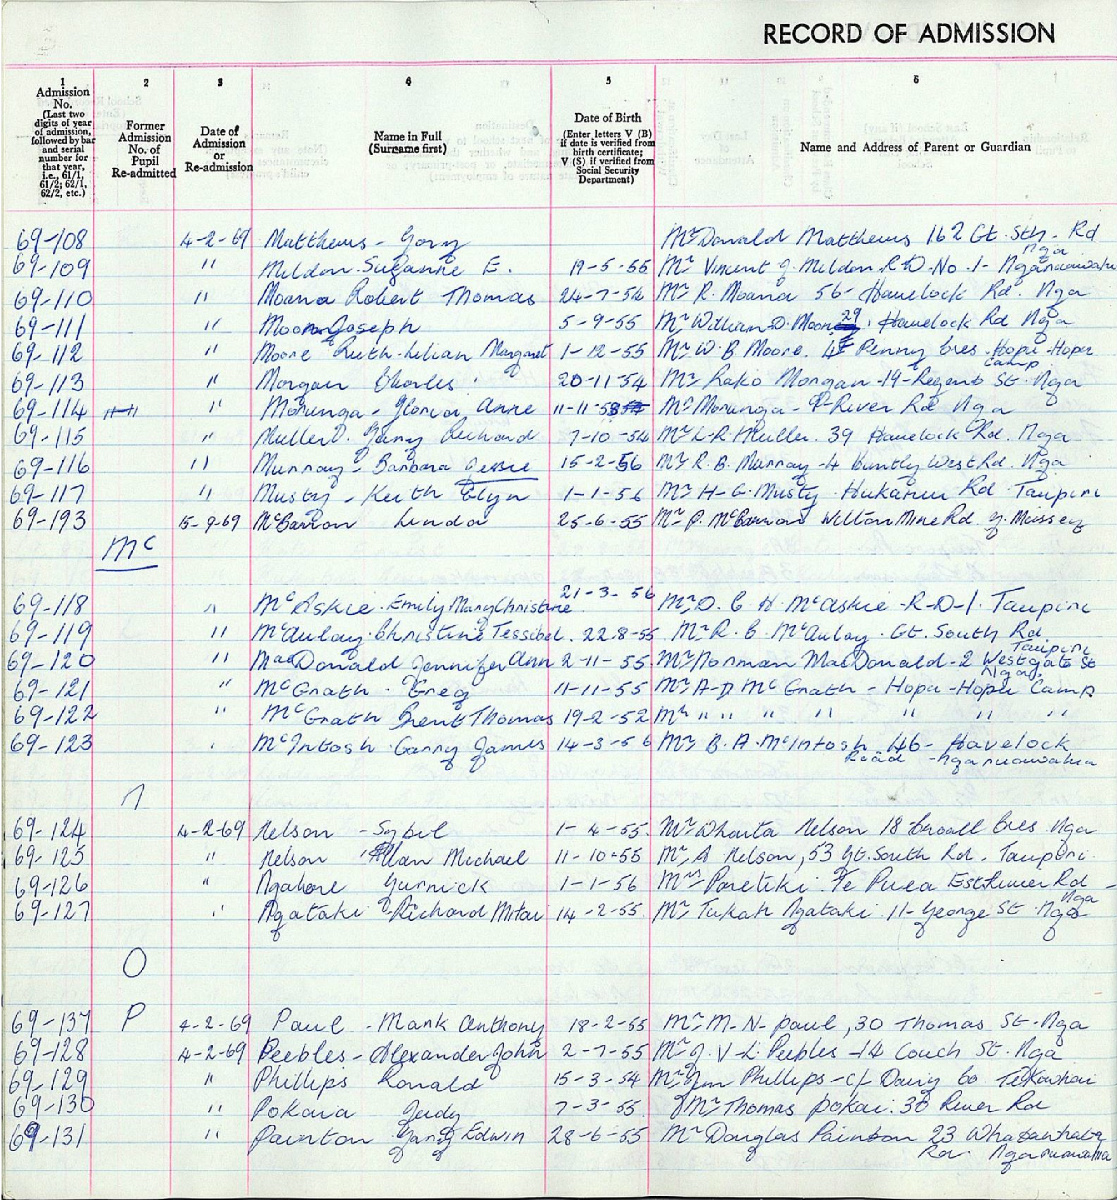 RECORD OF ADMISSION
1 2 3 4 5 6
Admission No. (Last two digits of year of admission, followed by bar and serial number for that year, i.e., 61/1, 61/2; 62/1, 62/2, etc.)
Former Admission No. of Pupil Re-admitted
Date of Admission or Re-admission
Name in Full (Surname first)
Date of Birth (Enter letters V (B) if date is verified from birth certificate; V (S) if verified from Social Security Department)
Name and Address of Parent or Guardian
69-108 4-2-69 Matthews - Gary Mr Donald Matthews 162 Gt. Sth. Rd Nga
69-109 " Meldon Suzanne E. 19-5-55 Mr Vincent J Meldon R.D. No. 1 - Ngaruawahia
69-110 " Moana Robert Thomas 24-7-54 Mr R. Moana 56 - Havelock Rd. Nga
69-111 " Joseph 5-9-55 Mr William D. 29 Havelock Rd Nga
69-112 " Moore Ruth Lilian Margaret 1-12-55 Mr W. B Moore. Penny Cres. Hopu-Hopu Camp
69-113 " Morgan Charles 20-11-54 Mr Rako Morgan - 19 - Regent St. Nga
69-114 " Morunga - Gloria Anne 11-11-53 Mr Morunga - River Rd Nga
69-115 " Muller D. Garry Richard 7-10-54 Mr L-R Muller. 39 Havelock Rd. Nga
69-116 " Murray - Barbara Jessie 15-2-56 Mr R. B. Murray - 4 Huntly West Rd. Nga
69-117 " Musty - Keith Glyn 1-1-56 Mr H-G. Musty Hukanui Rd Taupiri
69-193 15-9-69 McCarron Linda 25-6-55 Mr P. McCarron Wilton Mine Rd Massey
Mc
69-118 " McAskie Emily Mary Christine 21-3-56 Mr D. C H McAskie - R-D-1. Taupiri
69-119 " McAulay Christine Tessibel. 22.8-55 Mr R. B McAulay. Gt. South Rd. Taupiri
69-120 " MacDonald Jennifer Ann 2-11-55 Mr Norman MacDonald - 2 Westgate St Nga
69-121 " McGrath Greg 11-11-55 Mr A-D McGrath - Hopu-Hopu Camp
69-122 " McGrath Brent Thomas 19-2-52 Mr " " " " " " "
69-123 McIntosh Garry James 14-3-56 Mr B. A. McIntosh 46 - Havelock Road - Ngaruawahia
N
69-124 4-2-69 Nelson - Sybil 1-4-55. Mr Nelson 18 Cres. Nga
69-125 " Nelson Allan Michael 11-10-55 Mr A Nelson, 53 Gt. South Rd. Taupiri.
69-126 " Ngahere 1-1-56 Te Puea Rd - Nga
69-127 " Ngataki - Richard Mitai 14-2-55. Mr Tukah Ngataki. 11 - George St Nga
O
P
69-137 4-2-69 Paul - Mark Anthony 18-2-55 Mr M-N-Paul, 30 Thomas St. Nga
69-128 4-2-69 Peebles - Alexander John 2-7-55 Mr J. V-L Peebles - 14 Couch St. Nga
69-129 " Phillips Ronald 15-3-54 Mr Jim Phillips - c/ Dairy Co Te Kowhai
69-130 " Judy 7-3-55. Mr Thomas Pokai. 30 River Rd
69-131 " Painton Gary Edwin 28-6-55 Mr Douglas Painton 23 Whatawhata Rd. Ngaruawahia